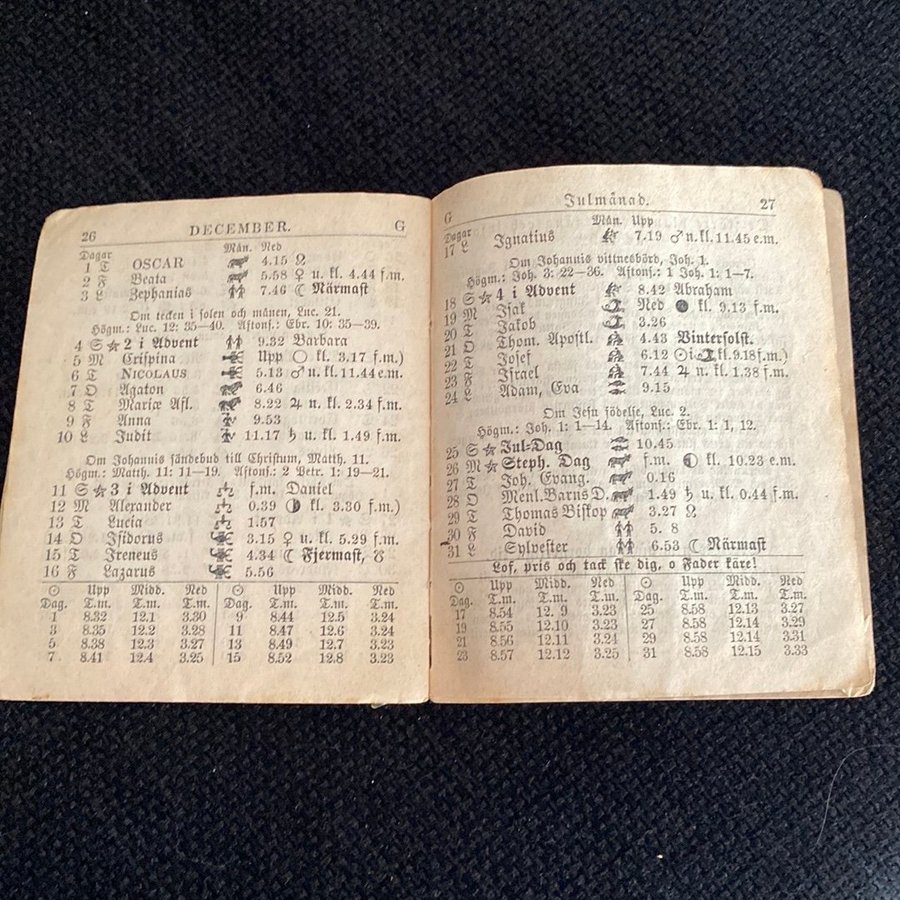 26 DECEMBER. G
Dagar Mån. Ned
1 T OSCAR 4.15 ☊
2 F Beata 5.58 ♀ u. kl. 4.44 f.m.
3 L Zephanias 7.46 ☾ Närmast
Om tecken i solen och månen, Luc. 21.
Högm.: Luc. 12: 35—40. Aftons.: Ebr. 10: 35—39.
4 S ☆ 2 i Advent 9.32 Barbara
5 M Crispina Upp ○ kl. 3.17 f.m.)
6 T NICOLAUS 5.13 ♂ u. kl. 11.44 e.m.
7 O Agaton 6.46
8 T Mariæ Afl. 8.22 ♃ u. kl. 2.34 f.m.
9 F Anna 9.53
10 L Judit 11.17 ♄ u. kl. 1.49 f.m.
Om Johannis sändebud till Christum, Matth. 11.
Högm.: Matth. 11: 11—19. Aftons.: 2 Petr. 1: 19—21.
11 S ☆ 3 i Advent f.m. Daniel
12 M Alexander 0.39 kl. 3.30 f.m.)
13 T Lucia 1.57
14 O Isidorus 3.15 ♀ u. kl. 5.29 f.m.
15 T Ireneus 4.34 ☾ Fjermast, ☋
16 F Lazarus 5.56
☉ Upp Midd. Ned ☉ Upp Midd. Ned
Dag. T.m. T.m. T.m. Dag. T.m. T.m. T.m.
1 8.32 12.1 3.30 9 8.44 12.5 3.24
3 8.35 12.2 3.28 11 8.47 12.6 3.24
5 8.38 12.3 3.27 13 8.49 12.7 3.23
7 8.41 12.4 3.25 15 8.52 12.8 3.23
G Julmånad. 27
Dagar Mån. Upp
17 L Ignatius 7.19 ♂ n. kl. 11.45 e.m.
Om Johannis vittnesbörd, Joh. 1.
Högm.: Joh. 3: 22—36. Aftons.: 1 Joh. 1: 1—7.
18 S ☆ 4 i Advent 8.42 Abraham
19 M Isak Ned ● kl. 9.13 f.m.
20 T Jakob 3.26
21 O Thom. Apostl. 4.43 Vintersolst.
22 T Josef 6.12 ☉ i kl. 9.18 f.m.)
23 F Israel 7.44 ♃ n. kl. 1.38 f.m.
24 L Adam, Eva 9.15
Om Jesu födelse, Luc. 2.
Högm.: Joh. 1: 1—14. Aftons.: Ebr. 1: 1, 12.
25 S ☆ Jul-Dag 10.45
26 M ☆ Steph. Dag f.m. kl. 10.23 e.m.
27 T Joh. Evang. 0.16
28 O Menl. Barns D. 1.49 ♄ u. kl. 0.44 f.m.
29 T Thomas Biskop 3.27 ☊
30 F David 5. 8
31 L Sylvester 6.53 ☾ Närmast
Lof, pris och tack ske dig, o Fader käre!
☉ Upp Midd. Ned ☉ Upp Midd. Ned
Dag. T.m. T.m. T.m. Dag. T.m. T.m. T.m.
17 8.54 12. 9 3.23 25 8.58 12.13 3.27
19 8.55 12.10 3.23 27 8.58 12.14 3.29
21 8.56 12.11 3.24 29 8.58 12.14 3.31
23 8.57 12.12 3.25 31 8.58 12.15 3.33